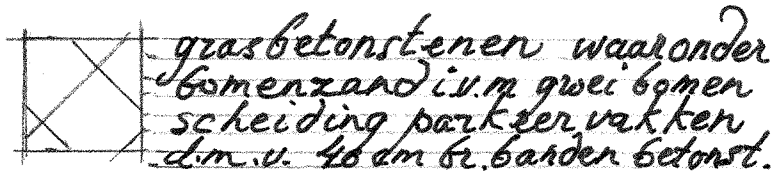 grasbetonstenen waaronder
bomenzand i.v.m groei bomen
scheiding parkeervakken
d.m.v. 40 cm br. banden betonst.